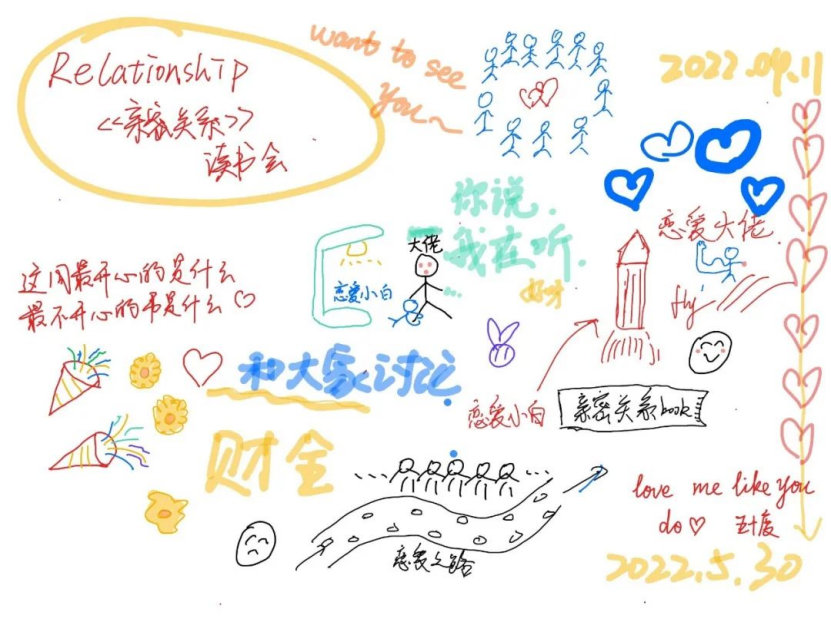 Relationship
《亲密关系》
读书会
want to see
you~
2022.04.11
你说,
我在听.
大佬
恋爱小白
恋爱大佬
fly
这周最开心的是什么
最不开心的事是什么
和大家讨论
恋爱小白
亲密关系book
财金
love me like you
do
恋爱之路
2022.5.30